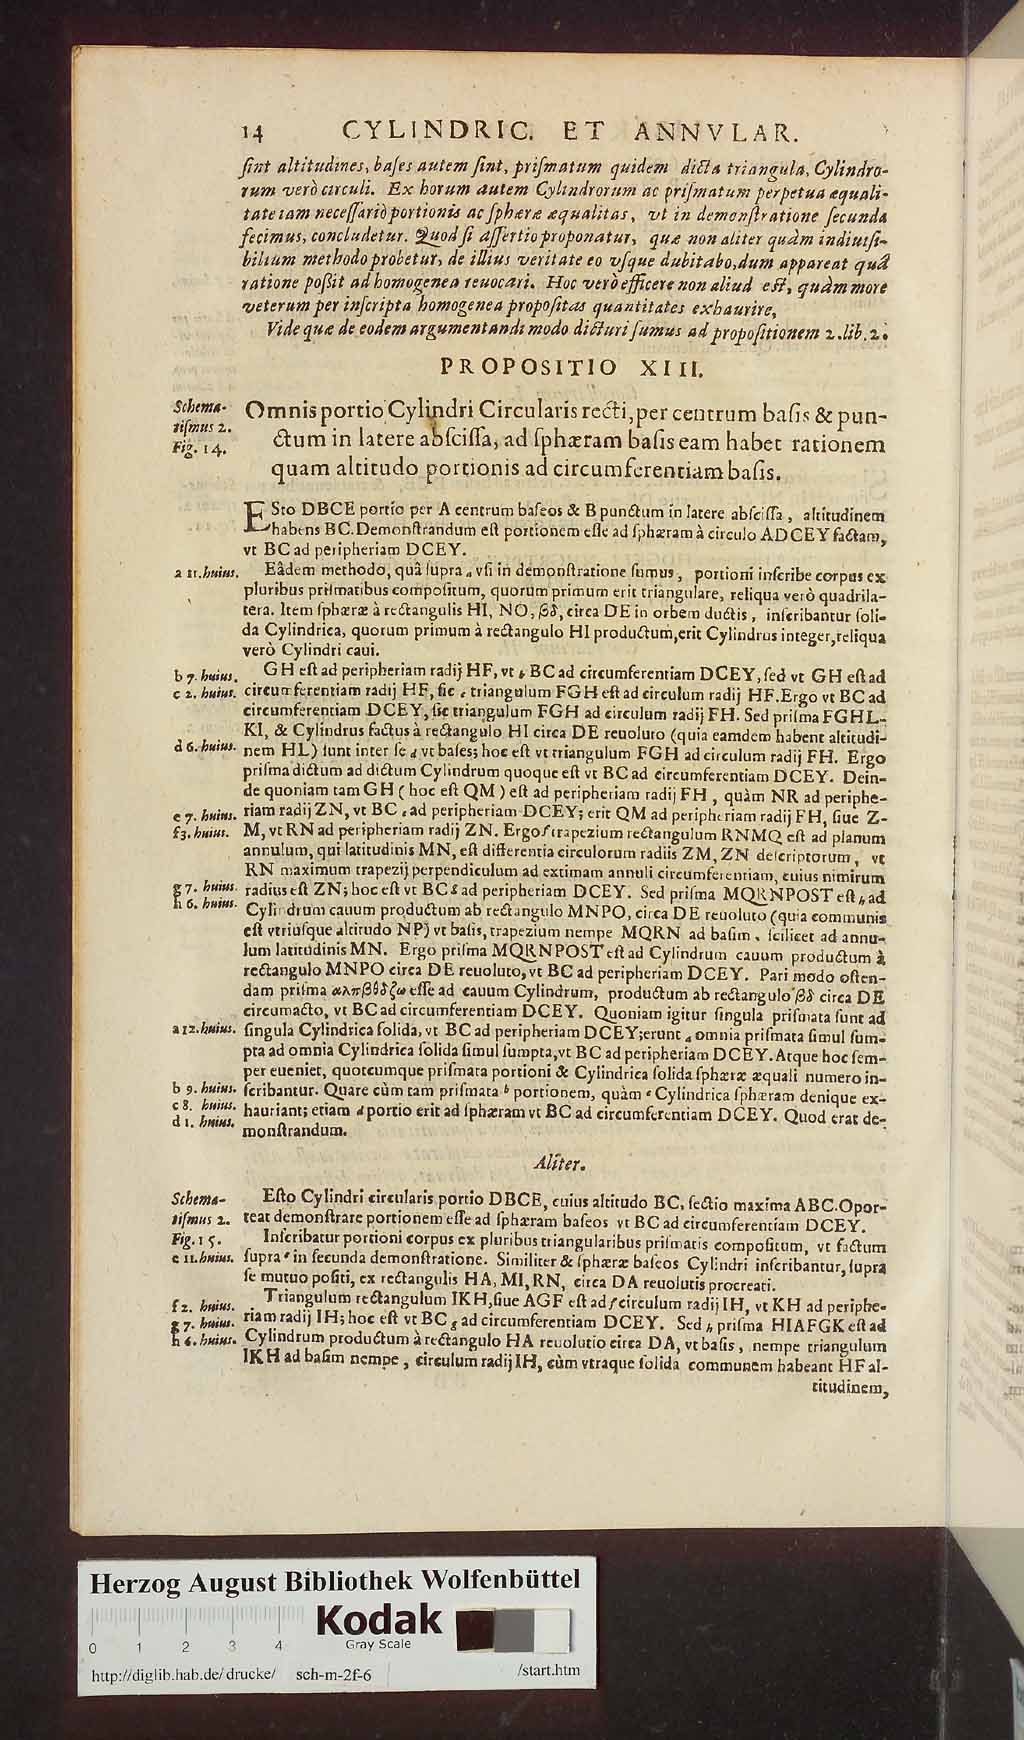 14 CYLINDRIC. ET ANNVLAR.
ſint altitudines, baſes autem ſint, priſmatum quidem dicta triangula, Cylindro-
rum verò circuli. Ex horum autem Cylindrorum ac priſmatum perpetua æquali-
tate iam neceſſariò portionis ac ſphæræ æqualitas, vt in demonſtratione ſecunda
fecimus, concludetur. Quod ſi aſſertio proponatur, quæ non aliter quàm indiuiſi-
bilium methodo probetur, de illius veritate eo vſque dubitabo, dum appareat quâ
ratione poßit ad homogenea reuocari. Hoc verò efficere non aliud eſt, quàm more
veterum per inſcripta homogenea propoſitas quantitates exhaurire,
Vide quæ de eodem argumentandi modo dicturi ſumus ad propoſitionem 2. lib. 2.
PROPOSITIO XIII.
Schema-
tiſmus 2.
Fig. 14.
Omnis portio Cylindri Circularis recti, per centrum baſis & pun-
ctum in latere abſciſſa, ad ſphæram baſis eam habet rationem
quam altitudo portionis ad circumferentiam baſis.
ESto DBCE portio per A centrum baſeos & B punctum in latere abſciſſa, altitudinem
habens BC. Demonſtrandum eſt portionem eſſe ad ſphæram à circulo ADCEY factam,
vt BC ad peripheriam DCEY.
a 11. huius. Eâdem methodo, quâ ſupra a vſi in demonſtratione ſumus, portioni inſcribe corpus ex
pluribus priſmatibus compoſitum, quorum primum erit triangulare, reliqua verò quadrila-
tera. Item ſphæræ à rectangulis HI, NO, βδ, circa DE in orbem ductis, inſcribantur ſoli-
da Cylindrica, quorum primum à rectangulo HI productum, erit Cylindrus integer, reliqua
verò Cylindri caui.
b 7. huius. GH eſt ad peripheriam radij HF, vt b BC ad circumferentiam DCEY, ſed vt GH eſt ad
c 2. huius. circumferentiam radij HF, ſic c triangulum FGH eſt ad circulum radij HF. Ergo vt BC ad
circumferentiam DCEY, ſic triangulum FGH ad circulum radij FH. Sed priſma FGHL-
KI, & Cylindrus factus à rectangulo HI circa DE reuoluto (quia eamdem habent altitudi-
d 6. huius. nem HL) ſunt inter ſe d vt baſes; hoc eſt vt triangulum FGH ad circulum radij FH. Ergo
priſma dictum ad dictum Cylindrum quoque eſt vt BC ad circumferentiam DCEY. Dein-
de quoniam tam GH (hoc eſt QM) eſt ad peripheriam radij FH, quàm NR ad periphe-
e 7. huius. riam radij ZN, vt BC e ad peripheriam DCEY; erit QM ad peripheriam radij FH, ſiue Z-
f 3. huius. M, vt RN ad peripheriam radij ZN. Ergo f trapezium rectangulum RNMQ eſt ad planum
annulum, qui latitudinis MN, eſt differentia circulorum radiis ZM, ZN deſcriptorum, vt
RN maximum trapezij perpendiculum ad extimam annuli circumferentiam, cuius nimirum
g 7. huius. radius eſt ZN; hoc eſt vt BC g ad peripheriam DCEY. Sed priſma MQRNPOST eſt h ad
h 6. huius. Cylindrum cauum productum ab rectangulo MNPO, circa DE reuoluto (quia communis
eſt vtriuſque altitudo NP) vt baſis, trapezium nempe MQRN ad baſim, ſcilicet ad annu-
lum latitudinis MN. Ergo priſma MQRNPOST eſt ad Cylindrum cauum productum à
rectangulo MNPO circa DE reuoluto, vt BC ad peripheriam DCEY. Pari modo oſten-
dam priſma αλπβθδζω eſſe ad cauum Cylindrum, productum ab rectangulo βδ circa DE
circumacto, vt BC ad circumferentiam DCEY. Quoniam igitur ſingula priſmata ſunt ad
a 12. huius. ſingula Cylindrica ſolida, vt BC ad peripheriam DCEY; erunt a omnia priſmata ſimul ſum-
pta ad omnia Cylindrica ſolida ſimul ſumpta, vt BC ad peripheriam DCEY. Atque hoc ſem-
per eueniet, quotcumque priſmata portioni & Cylindrica ſolida ſphæræ æquali numero in-
b 9. huius. ſcribantur. Quare cùm tam priſmata b portionem, quàm c Cylindrica ſphæram denique ex-
c 8. huius. hauriant; etiam d portio erit ad ſphæram vt BC ad circumferentiam DCEY. Quod erat de-
d 1. huius. monſtrandum.
Aliter.
Schema-
tiſmus 2.
Fig. 15.
Eſto Cylindri circularis portio DBCE, cuius altitudo BC, ſectio maxima ABC. Opor-
teat demonſtrare portionem eſſe ad ſphæram baſeos vt BC ad circumferentiam DCEY.
Inſcribatur portioni corpus ex pluribus triangularibus priſmatis compoſitum, vt factum
e 11. huius. ſupra e in ſecunda demonſtratione. Similiter & ſphæræ baſeos Cylindri inſcribantur, ſupra
ſe mutuo poſiti, ex rectangulis HA, MI, RN, circa DA reuolutis procreati.
f 2. huius. Triangulum rectangulum IKH, ſiue AGF eſt ad f circulum radij IH, vt KH ad periphe-
g 7. huius. riam radij IH; hoc eſt vt BC g ad circumferentiam DCEY. Sed h priſma HIAFGK eſt ad
h 6. huius. Cylindrum productum à rectangulo HA reuolutio circa DA, vt baſis, nempe triangulum
IKH ad baſim nempe, circulum radij IH, cùm vtraque ſolida communem habeant HF al-
titudinem,
Herzog August Bibliothek Wolfenbüttel
Kodak
Gray Scale
0 1 2 3 4
http://diglib.hab.de/drucke/ sch-m-2f-6 /start.htm